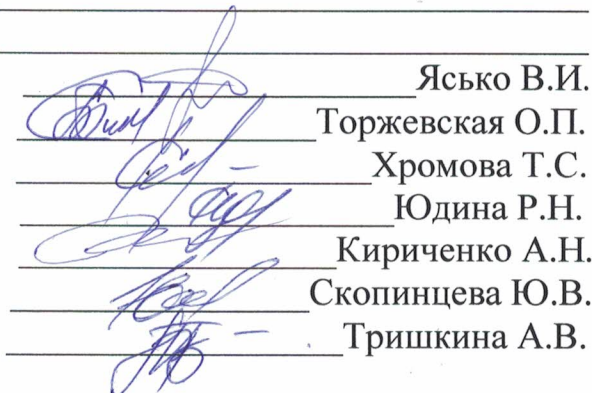 Ясько В.И.
Торжевская О.П.
Хромова Т.С.
Юдина Р.Н.
Кириченко А.Н.
Скопинцева Ю.В.
Тришкина А.В.